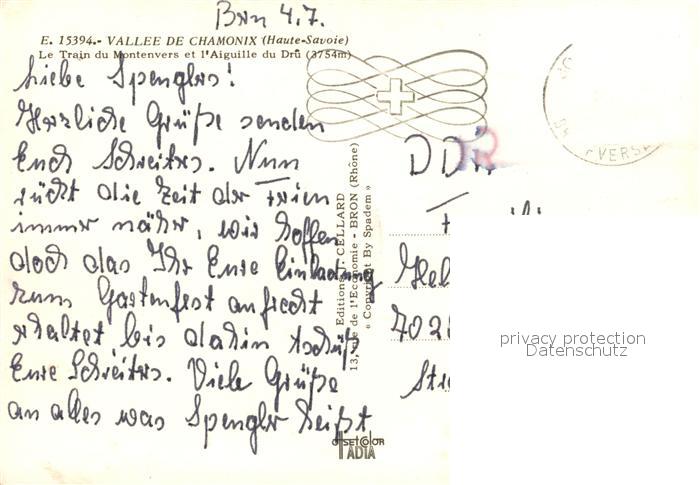 Bern 4.7.
E. 15394.- VALLEE DE CHAMONIX (Haute-Savoie)
Le Train du Montenvers et l'Aiguille du Drû (3754m)
Liebe Spenglers!
Herzliche Grüße senden
Euch Schreiters. Nun
rückt die Zeit der Ferien
immer näher, wir hoffen
doch das Ihr Eure Einladung
zum Gartenfest aufrecht
erhaltet bis dahin tschüß
Eure Schreiters. Viele Grüße
an alles was Spengler heißt
Editions J. CELLARD
13, rue de l'Economie - BRON (Rhône)
« Copyright By Spadem »
OFFSETCOLOR
IADIA
DDR
Hel
702
Str
VERS
privacy protection
Datenschutz